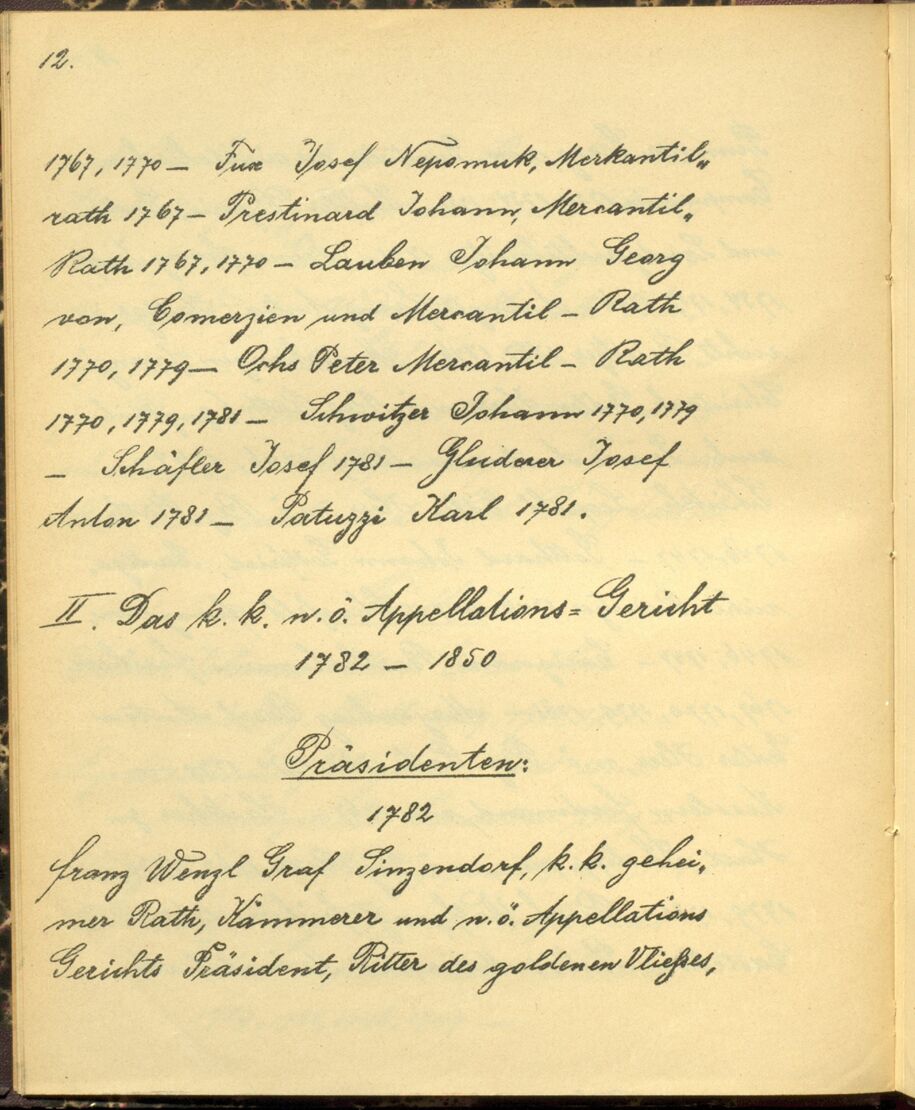 12.
1767, 1770 — Fux Josef Nepomuk, Merkantil„
rath 1767 — Prestinard Johann, Mercantil„
Rath 1767, 1770 — Lauben Johann Georg
von, Comerzien und Mercantil — Rath
1770, 1779 — Ochs Peter Mercantil — Rath
1770, 1779, 1781 — Schwitzer Johann 1770, 1779
— Schäfler Josef 1781 — Gluderer Josef
Anton 1781 — Patuzzi Karl 1781.
II. Das k. k. n. ö. Appellations=Gericht
1782 — 1850
Präsidenten:
1782
Franz Wenzl Graf Sinzendorf, k. k. gehei„
mer Rath, Kämmerer und n. ö. Appellations
Gerichts Präsident, Ritter des goldenen Vließes,